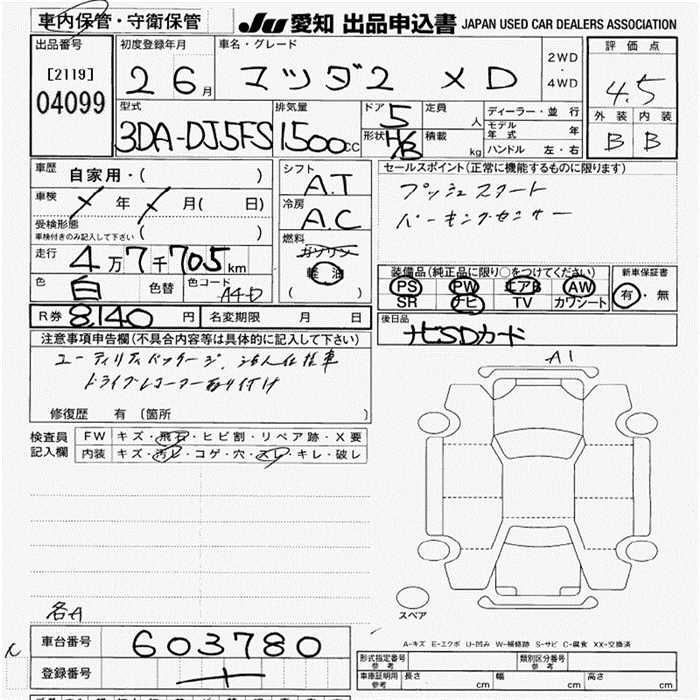 車内保管・守衛保管
JU 愛知 出品申込書 JAPAN USED CAR DEALERS ASSOCIATION
出品番号
[2119]
04099
初度登録年月
2 6月
車名・グレード
マツダ2 XD
2WD
・
4WD
評価点
4.5
外装 内装
B B
型式
3DA-DJ5FS
排気量
1500cc
ドア 5
形状 H/B
定員 人
積載 kg
ディーラー・並行
モデル年式 年
ハンドル 左・右
車歴 自家用・( )
車検 年 月(日)
受検形態
車検付きのみ記入して下さい ( )
走行 4万7千705km
色 白 色替 色コード A4D
シフト A.T
冷房 A.C
燃料
ガソリン
軽油
( )
セールスポイント(正常に機能するものに限ります)
プッシュスタート
パーキングセンサー
装備品(純正品に限り○をつけてください)
PS PW エアB AW
SR ナビ TV カワシート
新車保証書
有・無
R券 8,140円 名変期限 月 日
後日品
ナビSDカード
注意事項申告欄(不具合内容等は具体的に記入して下さい)
ユーティリティパッケージ、法人仕様車
ドライブレコーダー取り付け
修復歴 有 〔箇所 〕
検査員記入欄
FW キズ・飛石・ヒビ割・リペア跡・X要
内装 キズ・汚レ・コゲ・穴・スレ・キレ・破レ
A1
スペア
各A
A-キズ E-エクボ U-凹み W-補修跡 S-サビ C-腐食 XX-交換済
車台番号 603780
登録番号
形式指定番号 参考
類別区分番号 参考
車庫証明用 参考 長さ cm 幅 cm 高さ cm